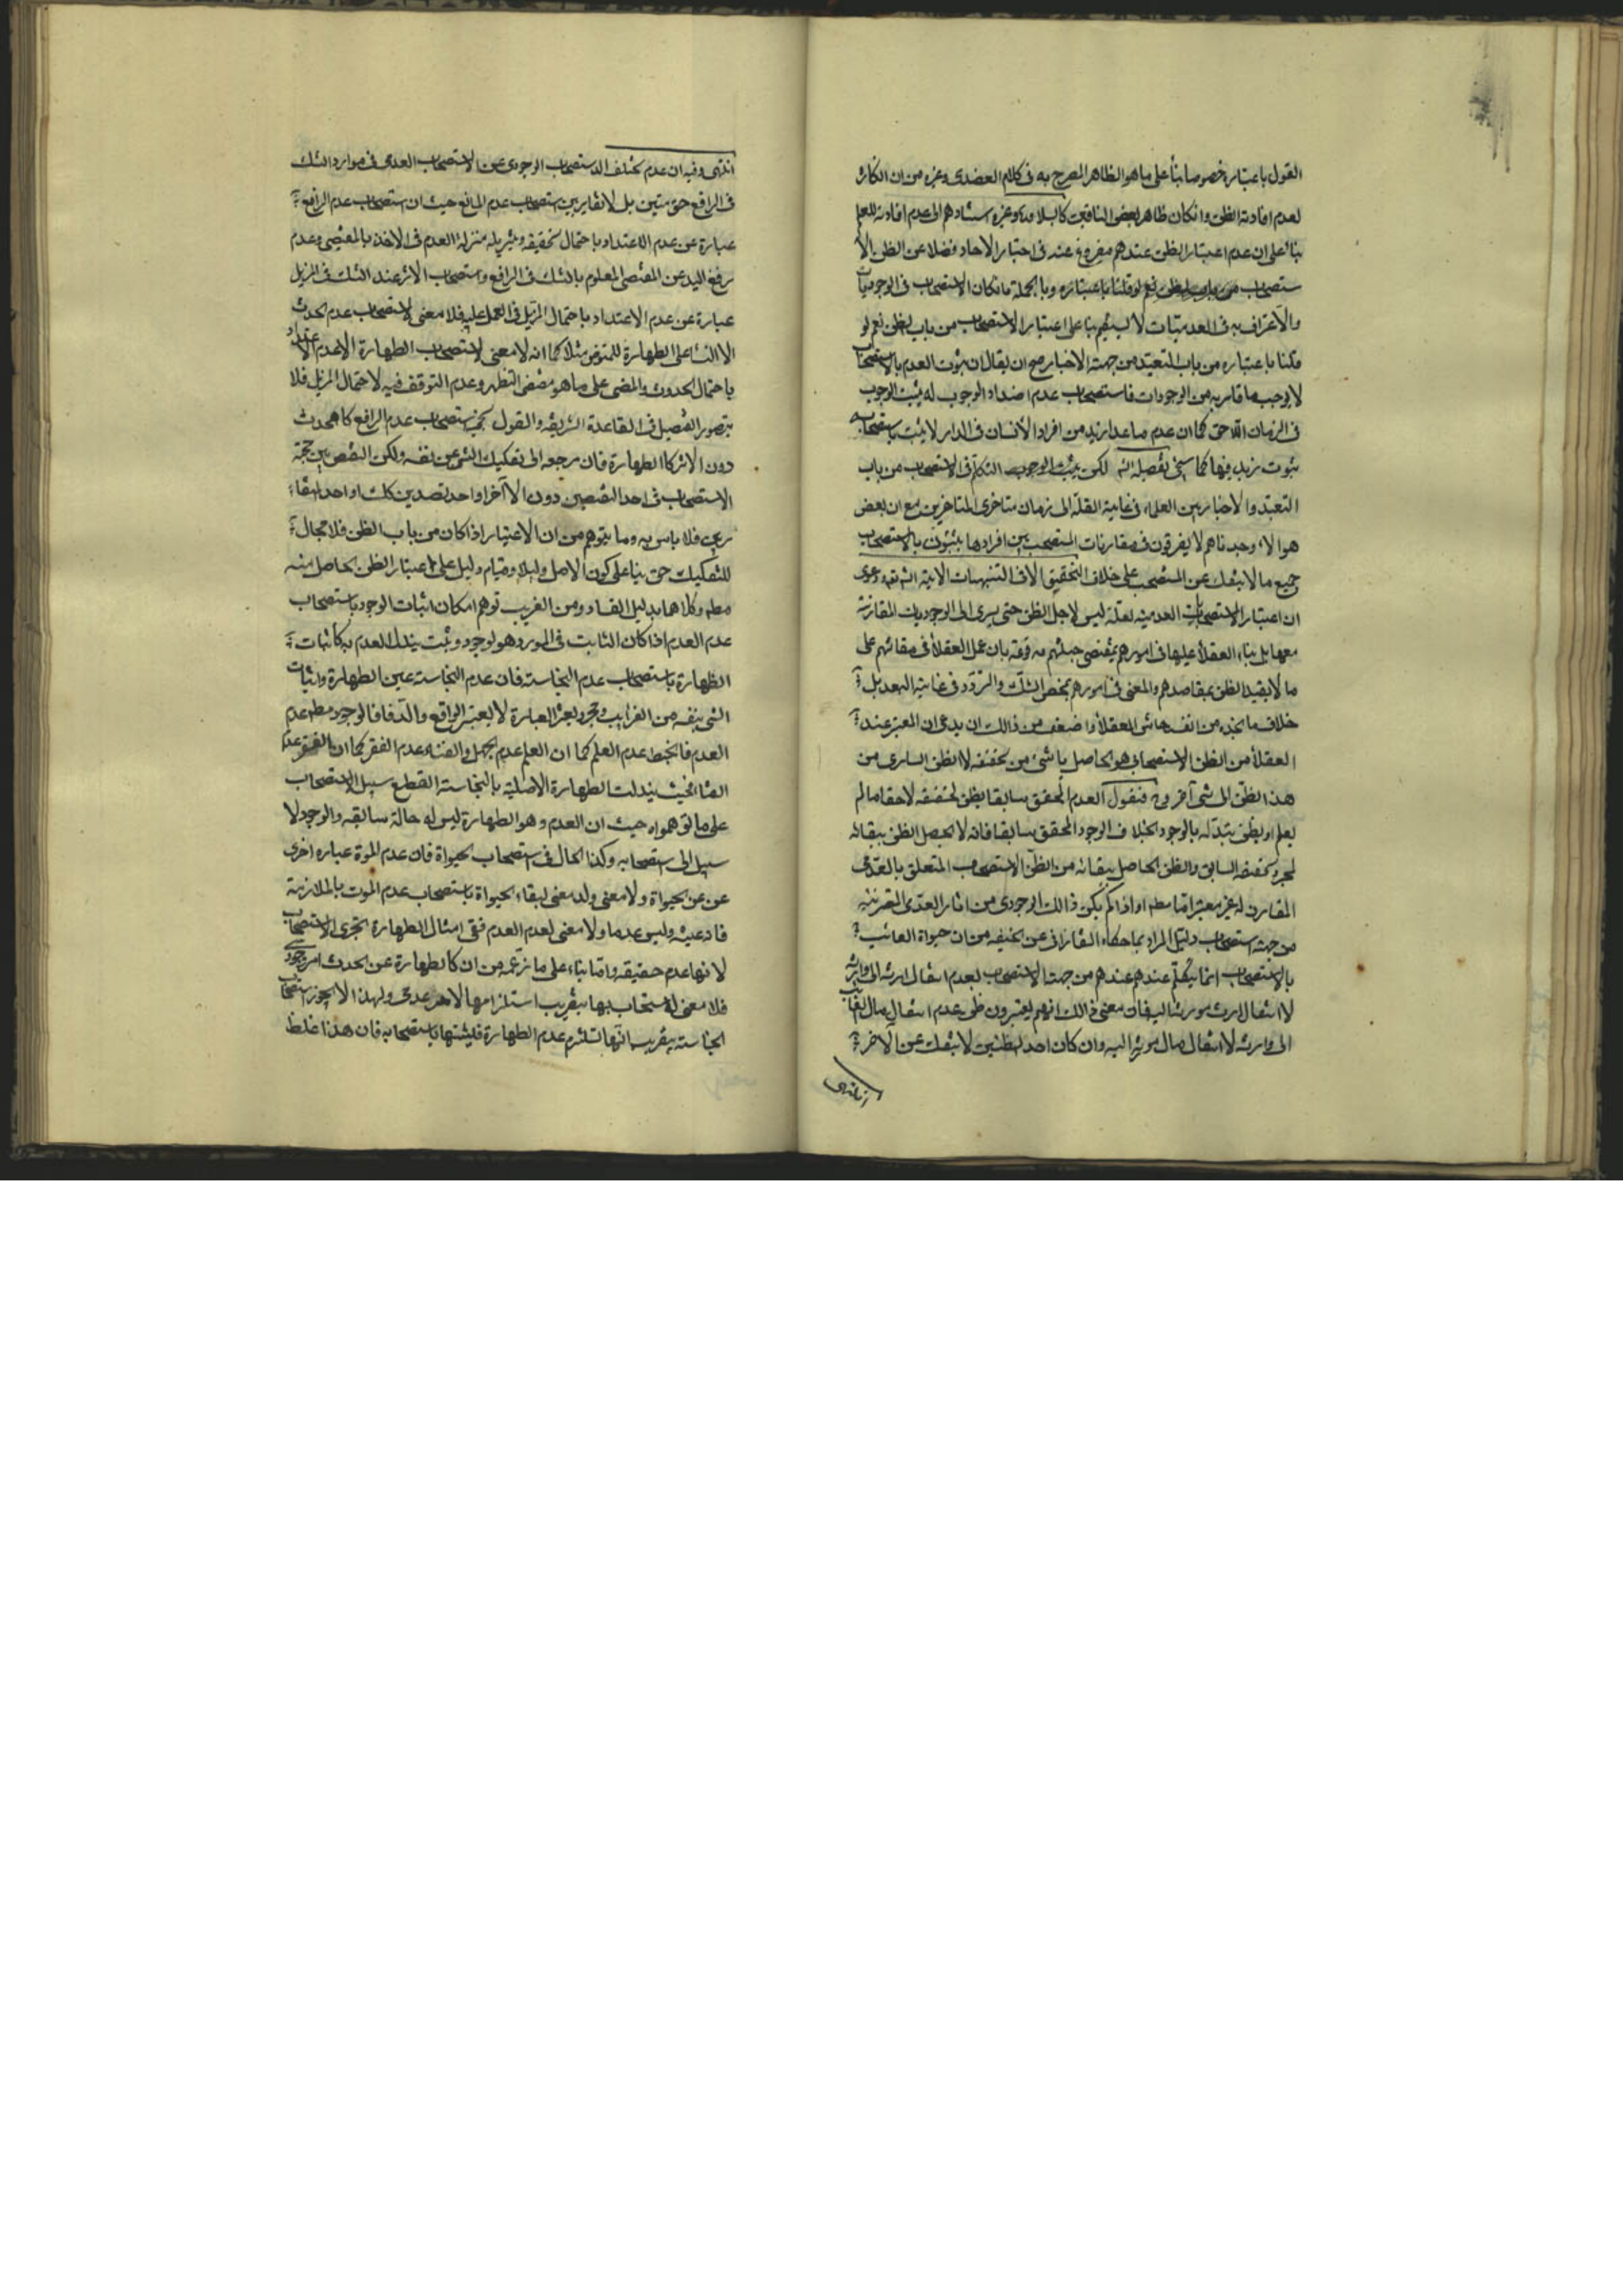 القول باعتباره خصوصا بناً على ما هو الظاهر المصرح به فى كلام العضدى وغيره من ان انكاره
لعدم افادته الظن وان كان ظاهر بعض النافين كالسيد وغيره استنادهم الى عدم افادته للعلم
بناً على ان عدم اعتبار الظن عندهم مفروغ عنه فى اخبار الاحاد فضلا عن الظن الا
ستصحاب نعم لو قلنا باعتباره وبالجملة فانكار الاستصحاب فى الوجوديات
والاعتراف به فى العدميات لا يستقيم بنا على اعتبار الاستصحاب من باب الظن نعم لو
قلنا باعتباره من باب التعبد من جهة الاخبار صح ان يقال ان ثبوت العدم بالاستصحاب
لا يوجب ما قارنه من الوجودات فاستصحاب عدم اضداد الوجوب له يثبت الوجوب
فى الزمان اللاحق كما ان عدم ما عدا زيد من افراد الانسان فى الدار لا يثبت باستصحابه
ثبوت زيد فيها كما سيجئ تفصيله انش لكن يثبت الوجوب التكلم فى الاستصحاب من باب
التعبد والاخبار بين العلماء فى غاية القلة الى زمان متاخرى المتاخرين مع ان بعض
هولاء وجدناهم لا يفرقون فى مقارنات المستصحب بين افرادها يثبتون بالاستصحاب
جميع ما لا ينفك عن المستصحب على خلاف التحقيق الاتى فى التنبيهات الاتية انش تع ودعوى
ان اعتبار الاستصحابات العدمية لعله ليس لاجل الظن حتى يسرى الى الوجوديات المقارنة
معها بل بناء العقلاً عليها فى امورهم بمقتضى جبلتهم مدفوعة بان عمل العقلاً فى معاشهم على
ما لا يفيد الظن بمقاصدهم والمضى فى امورهم بمحض الشك والتردد فى غاية البعد بل
خلاف ما نجده من انفسنا معاشر العقلاً واضعف من ذالك ان يدعى ان المعتبر عند
العقلاً من الظن الاستصحابى هو الحاصل بالشئ من تحققه لا الظن السارى من
هذا الظن الى شئ اخر وح فنقول العدم المحقق سابقا يظن لتحققه لاحقا ما لم
يعلم او يظن تبدله بالوجود بخلاف الوجود المحقق سابقا فانه لا يحصل الظن ببقائه
لمجرد تحققه السابق والظن الحاصل ببقائه من الظن الاستصحاب المتعلق بالعدمى
المقارن له غير معتبر اما مطم او اذا لم يكن ذالك الوجودى من اثار العدمى المقترن به
من جهة استصحاب دليل المراد بما حكاه التفتازانى عن الحنفيه من ان حيواة الغائب
بالاستصحاب انما يصلح عندهم من جهة الاستصحاب لعدم انتقال ارثه الى وارثه
لا انتقال ارث مورثه اليه فان معنى ذالك انهم يعتبرون ظن عدم انتقال مال الغائب
الى وارثه لا انتقال مال مورثه اليه وان كان احد الظنين لا ينفك عن الاخر
انتهى وفيه ان عدم تخلف الاستصحاب الوجودى عن الاستصحاب العدمى فى موارد الشك
فى الرافع حق متين بل لا تغاير بين استصحاب عدم المانع حيث ان استصحاب عدم الرافع
عبارة عن عدم الاعتداد باحتمال تحققه وتنزيله منزلة العدم فى الاخذ بالمقتضى وعدم
رفع اليد عن المقتضى المعلوم بالشك فى الرافع واستصحاب الاثر عند الشك فى المزيل
عبارة عن عدم الاعتداد باحتمال المزيل فى العمل عليه فلا معنى لاستصحاب عدم الحدث
الا البناء على الطهارة للمتوضى مثلا كما انه لا معنى لاستصحاب الطهارة الا عدم الاعتداد
باحتمال الحدوث والمضى على ما هو مقتضى التطهر وعدم التوقف فيه لاحتمال المزيل فلا
يتصور التفصيل فى القاعدة الشريفه والقول بحجية استصحاب عدم الرافع كالحدث
دون الاثر كالطهارة فان مرجعه الى تفكيك الشئ عن نفسه ولكن النقض بين حجية
الاستصحاب فى احد النقيضين دون الاخر او احد الضدين كك او احد المتقا
رنين فلا باس به وما يتوهم من ان الاعتبار اذا كان من باب الظن فلا مجال
للتفكيك حق بنا على كون الاصل دليلا وقيام دليل على اعتبار الظن الحاصل منه
مطم وكلاهما بديل الفساد ومن الغريب توهم امكان اثبات الوجود باستصحاب
عدم العدم اذا كان الثابت فى المورد هو لوجود وثبت بذلك العدم كاثبات
الطهارة باستصحاب عدم النجاسته فان عدم النجاسته عين الطهارة واثبات
الشئ بنفسه من الغرايب ومجرد تغير العبارة لا يغير الواقع والا فالوجود مطم عدم
العدم فالجهل عدم العلم كما ان العلم عدم الجهل والغناء عدم الفقر كما ان الفقر عدم
الغناء فحيث تبدلت الطهارة الاصلية بالنجاسته انقطع سبيل الاستصحاب
على ما توهموه حيث ان العدم وهو الطهارة ليس له حالة سابقه والوجود لا
سبيل الى استصحابه وكذا الحال فى استصحاب الحيواة فان عدم الموة عباره اخرى
عن عين الحيواة ولا معنى لابقاء الحيواة باستصحاب عدم الموت بالملازمة
فانه عينه وليس عدما ولا معنى لعدم العدم ففى امثال الطهارة يجرى الاستصحاب
لانها عدم حقيقه واما بناء على ما زعمه من ان كالطهارة عن الحدث امر وجودى
فلا معنى لاستصحابها بتقريب استلزامها لامر عدمى ولهذا لا يجوز استصحاب
النجاسته بتقريب انها تستلزم عدم الطهارة فليثبتها باستصحابه فان هذا غلط